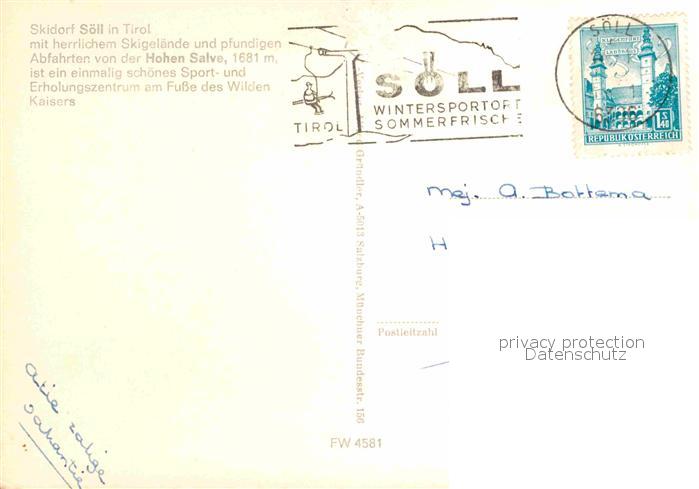 Skidorf Söll in Tirol
mit herrlichem Skigelände und pfundigen
Abfahrten von der Hohen Salve, 1681 m,
ist ein einmalig schönes Sport- und
Erholungszentrum am Fuße des Wilden
Kaisers
TIROL
SÖLL
WINTERSPORTORT
SOMMERFRISCHE
SÖLL
KLAGENFURT
LANDHAUS
1.40
S
REPUBLIK ÖSTERREICH
Mej. A. Bottema
H
Gründler, A-5013 Salzburg, Münchner Bundesstr. 156
Postleitzahl
privacy protection
Datenschutz
FW 4581